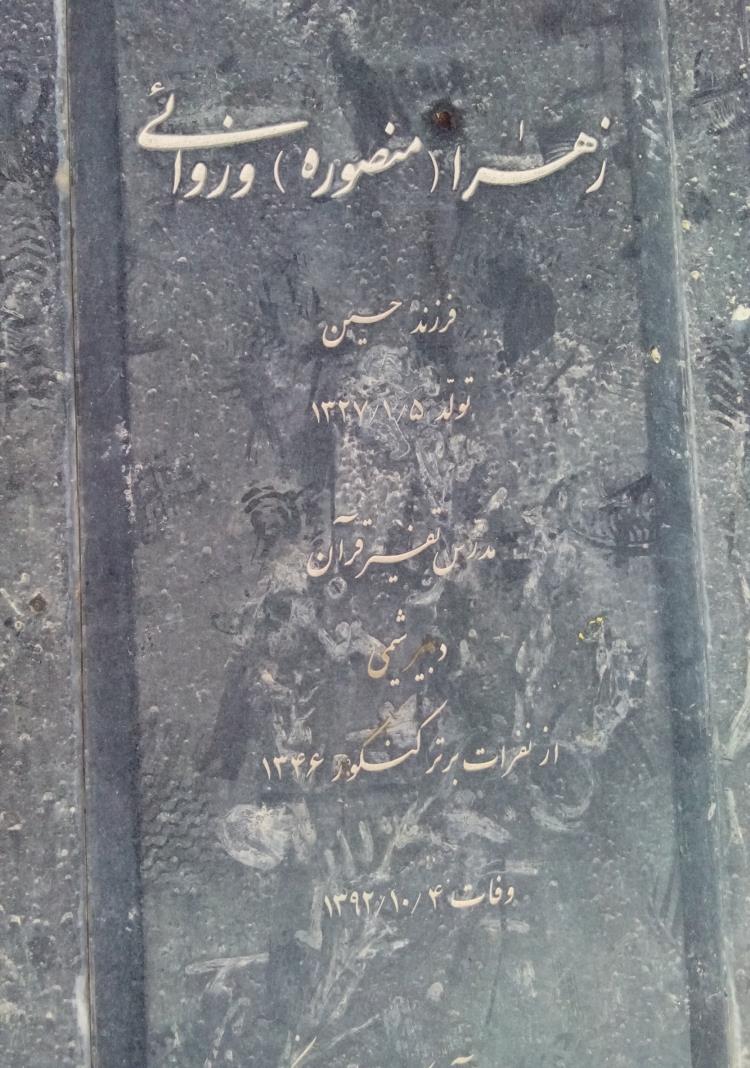 زهرا (منصوره) وروائی
فرزند حسین
تولّد ۱۳۲۷/۱/۵
مدرّس تفسیر قرآن
دبیر شیمی
از نفرات برتر کنکور ۱۳۴۶
وفات ۱۳۹۲/۱۰/۴